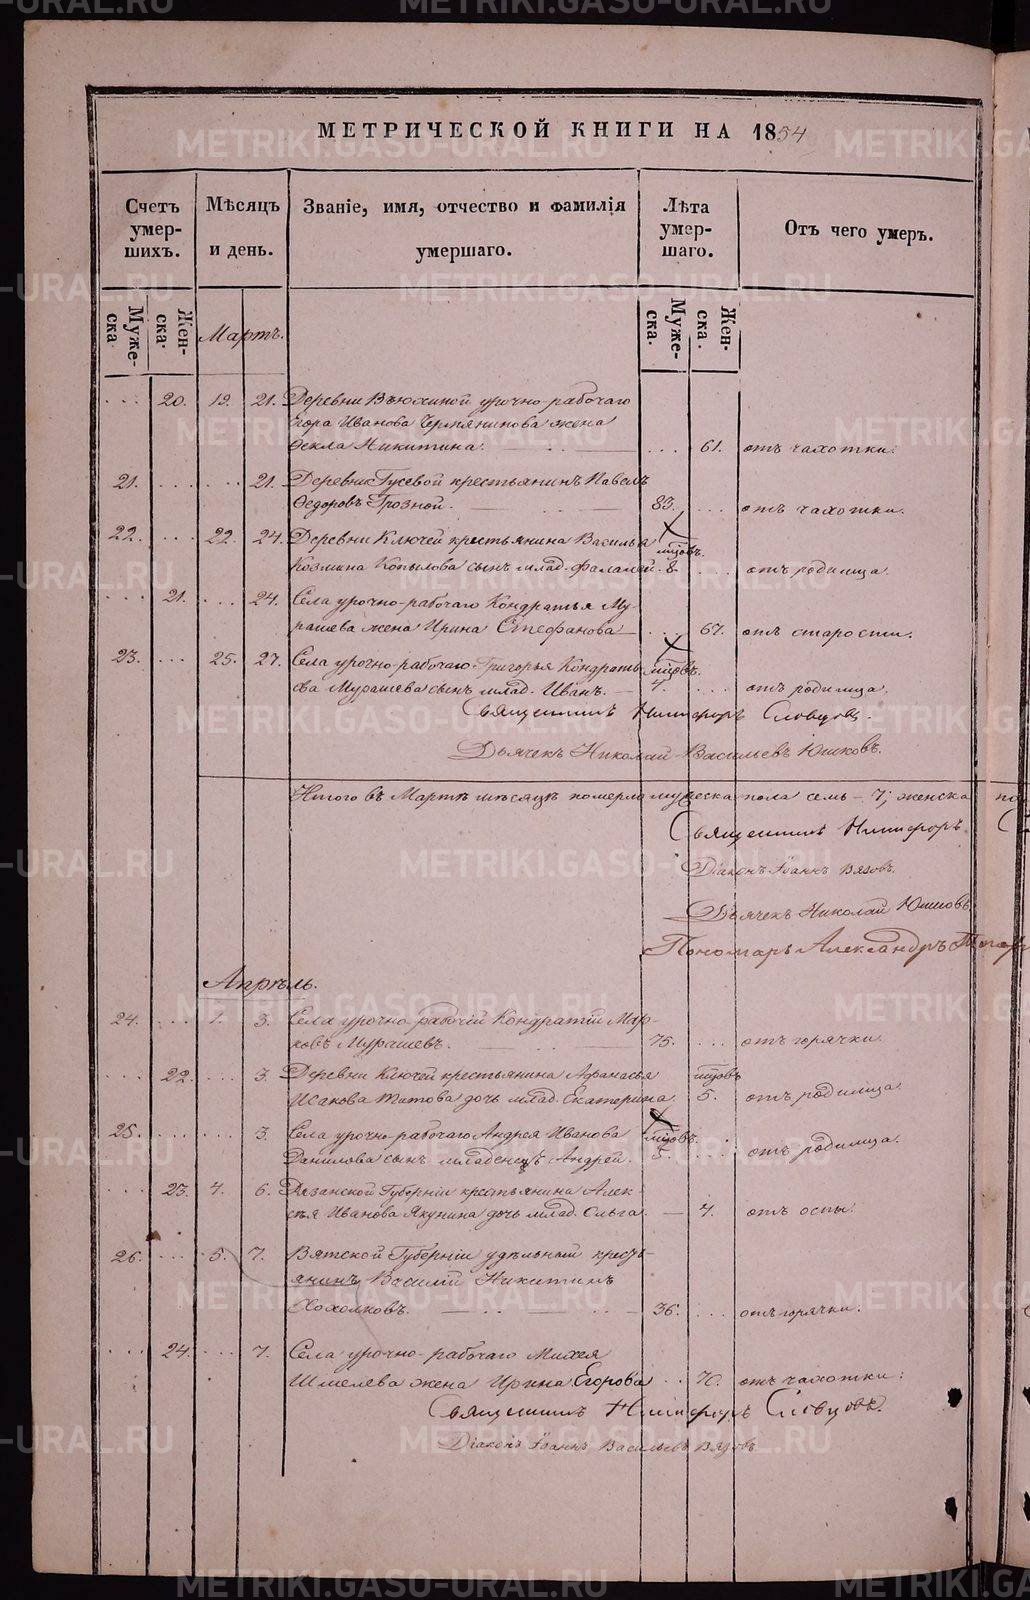 МЕТРИЧЕСКОЙ КНИГИ НА 1854
Счетъ умер-шихъ.
Мѣсяцъ и день.
Званіе, имя, отчество и фамилія умершаго.
Лѣта умер-шаго.
Отъ чего умеръ.
Муже-ска
Жен-ска.
Муже-ска.
Жен-ска.
Мартъ.
... 20. 19. 21. Деревни Вьюхиной урочно-рабочаго
Егора Иванова Чермянинова жена
Ѳекла Никитина. ... 61. отъ чахотки.
21. ... 21. Деревни Гусевой крестьянинъ Павелъ
Ѳедоровъ Грозной. 83. ... отъ чахотки.
22. ... 22. 24. Деревни Ключей крестьянина Василья мцовъ.
Козмина Копылова сынъ млад. Фалалей. 8. ... отъ родимца.
... 21. ... 24. Села урочно-рабочаго Кондратья Му-
рашева жена Ирина Стефанова ... 67. отъ старости.
23. ... 25. 27. Села урочно-рабочаго Григорья Кондрать- мцовъ.
ева Мурашева сынъ млад. Иванъ. 4. ... отъ родимца.
Священникъ Никифоръ Словцовъ.
Дьячекъ Николай Васильевъ Юшковъ.
Итого въ Мартѣ мѣсяцѣ померло мужеска пола семь - 7; женска
Священникъ Никифоръ
Діаконъ Іоаннъ Вязовъ.
Дьячекъ Николай Юшковъ
Пономарь Александръ
Апрѣль.
24. ... 1. 3. Села урочно-рабочій Кондратій Мар-
ковъ Мурашевъ. 75. ... отъ горячки.
... 22. ... 3. Деревни Ключей крестьянина Аѳанасья мцовъ
Исакова Титова дочь млад. Екатерина. 5. отъ родимца.
25. ... 3. Села урочно-рабочаго Андрея Иванова мцовъ.
Данилова сынъ младенецъ Андрей. 5. ... отъ родимца.
... 23. 4. 6. Рязанской Губерніи крестьянина Алек-
сѣя Иванова Якунина дочь млад. Ольга. 4. отъ оспы.
26. ... 5. 7. Вятской Губерніи удѣльный кресть-
янинъ Василій Никитинъ
Хохолковъ. 36. ... отъ горячки.
... 24. ... 7. Села урочно-рабочаго Михея
Шмелева жена Ирина Егорова ... 70. отъ чахотки:
Священникъ Никифоръ Словцовъ.
Діаконъ Іоаннъ Васильевъ Вязовъ
METRIKI.GASO-URAL.RU